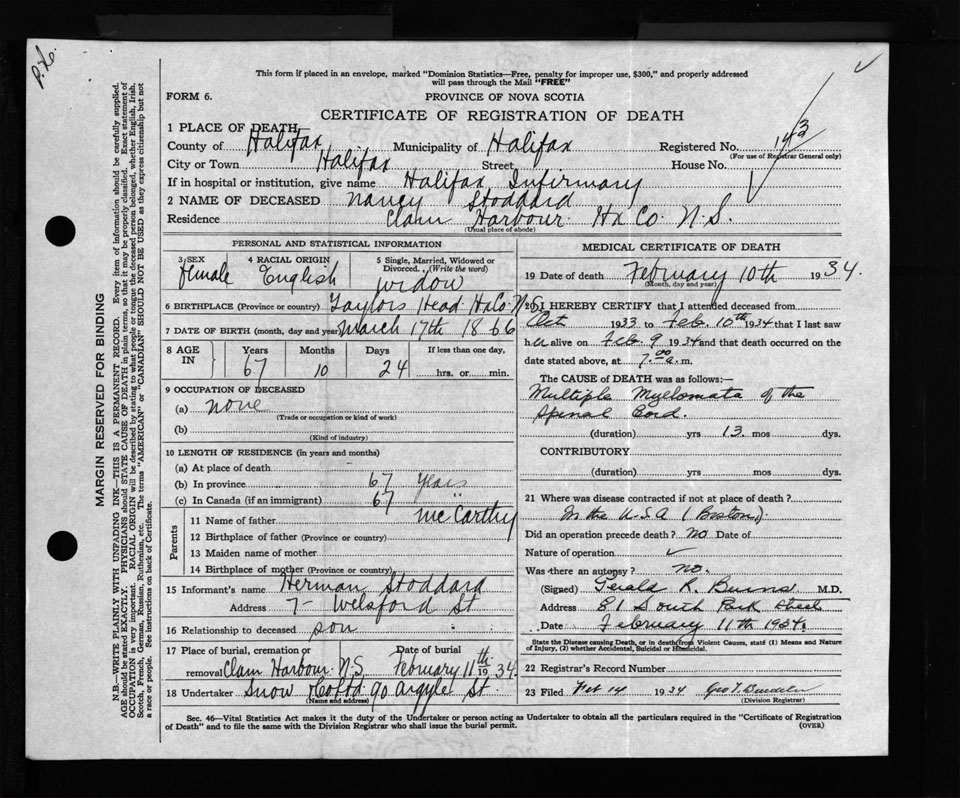 P.X.
This form if placed in an envelope, marked "Dominion Statistics—Free, penalty for improper use, $300," and properly addressed
will pass through the Mail "FREE"
FORM 6.
PROVINCE OF NOVA SCOTIA
CERTIFICATE OF REGISTRATION OF DEATH
1 PLACE OF DEATH
County of Halifax Municipality of Halifax Registered No. 143
(For use of Registrar General only)
City or Town Halifax Street House No.
If in hospital or institution, give name Halifax Infirmary
2 NAME OF DECEASED Nancy Stoddard
Residence Clam Harbour Hx Co. N.S.
(Usual place of abode)
PERSONAL AND STATISTICAL INFORMATION
3 SEX 4 RACIAL ORIGIN 5 Single, Married, Widowed or
Divorced. (Write the word)
Female English widow
6 BIRTHPLACE (Province or country) Taylors Head Hx Co. N.S.
7 DATE OF BIRTH (month, day and year) March 17th 1866
8 AGE IN Years Months Days If less than one day,
67 10 24 hrs. or min.
9 OCCUPATION OF DECEASED
(a) none
(Trade or occupation or kind of work)
(b)
(Kind of industry)
10 LENGTH OF RESIDENCE (in years and months)
(a) At place of death
(b) In province 67 Years
(c) In Canada (if an immigrant) 67 "
Parents
11 Name of father McCarthy
12 Birthplace of father (Province or country)
13 Maiden name of mother
14 Birthplace of mother (Province or country)
15 Informant's name Herman Stoddard
Address 7 - Welsford St
16 Relationship to deceased son
17 Place of burial, cremation or removal Clam Harbour N.S. Date of burial February 11th 1934
18 Undertaker Snow Co Ltd 90 Argyle St.
(Name and address)
MEDICAL CERTIFICATE OF DEATH
19 Date of death February 10th 1934.
(Month, day and year)
20 I HEREBY CERTIFY that I attended deceased from
Oct 1933 to Feb. 10th 1934 that I last saw
her alive on Feb. 9 1934 and that death occurred on the
date stated above, at 7.00 a. m.
The CAUSE OF DEATH was as follows:—
Multiple Myelomata of the
Spinal Cord.
(duration) yrs 13 mos dys.
CONTRIBUTORY
(duration) yrs mos dys.
21 Where was disease contracted if not at place of death?
In the U.S.A (Boston).
Did an operation precede death? No Date of
Nature of operation
Was there an autopsy? no.
(Signed) Gerald R. Burns M.D.
Address 81 South Park Street
Date February 11th 1934.
State the Disease causing Death, or in death from Violent Causes, state (1) Means and Nature
of Injury, (2) whether Accidental, Suicidal or Homicidal.
22 Registrar's Record Number
23 Filed Feb 14 1934 Geo T.
(Division Registrar)
Sec. 46—Vital Statistics Act makes it the duty of the Undertaker or person acting as Undertaker to obtain all the particulars required in the "Certificate of Registration
of Death" and to file the same with the Division Registrar who shall issue the burial permit.
(OVER)
MARGIN RESERVED FOR BINDING
N.B.—WRITE PLAINLY WITH UNFADING INK—THIS IS A PERMANENT RECORD. Every item of information should be carefully supplied.
AGE should be stated EXACTLY. PHYSICIANS should STATE CAUSE OF DEATH in plain terms, so that it may be properly classified. Exact statement of
OCCUPATION is very important. RACIAL ORIGIN will be described by stating to what people or tongue the deceased person belonged, whether English, Irish,
Scotch, French, German, Russian, Ruthenian, etc. The terms "AMERICAN" or "CANADIAN" SHOULD NOT BE USED as they express citizenship but not
a race or people. See instructions on back of Certificate.